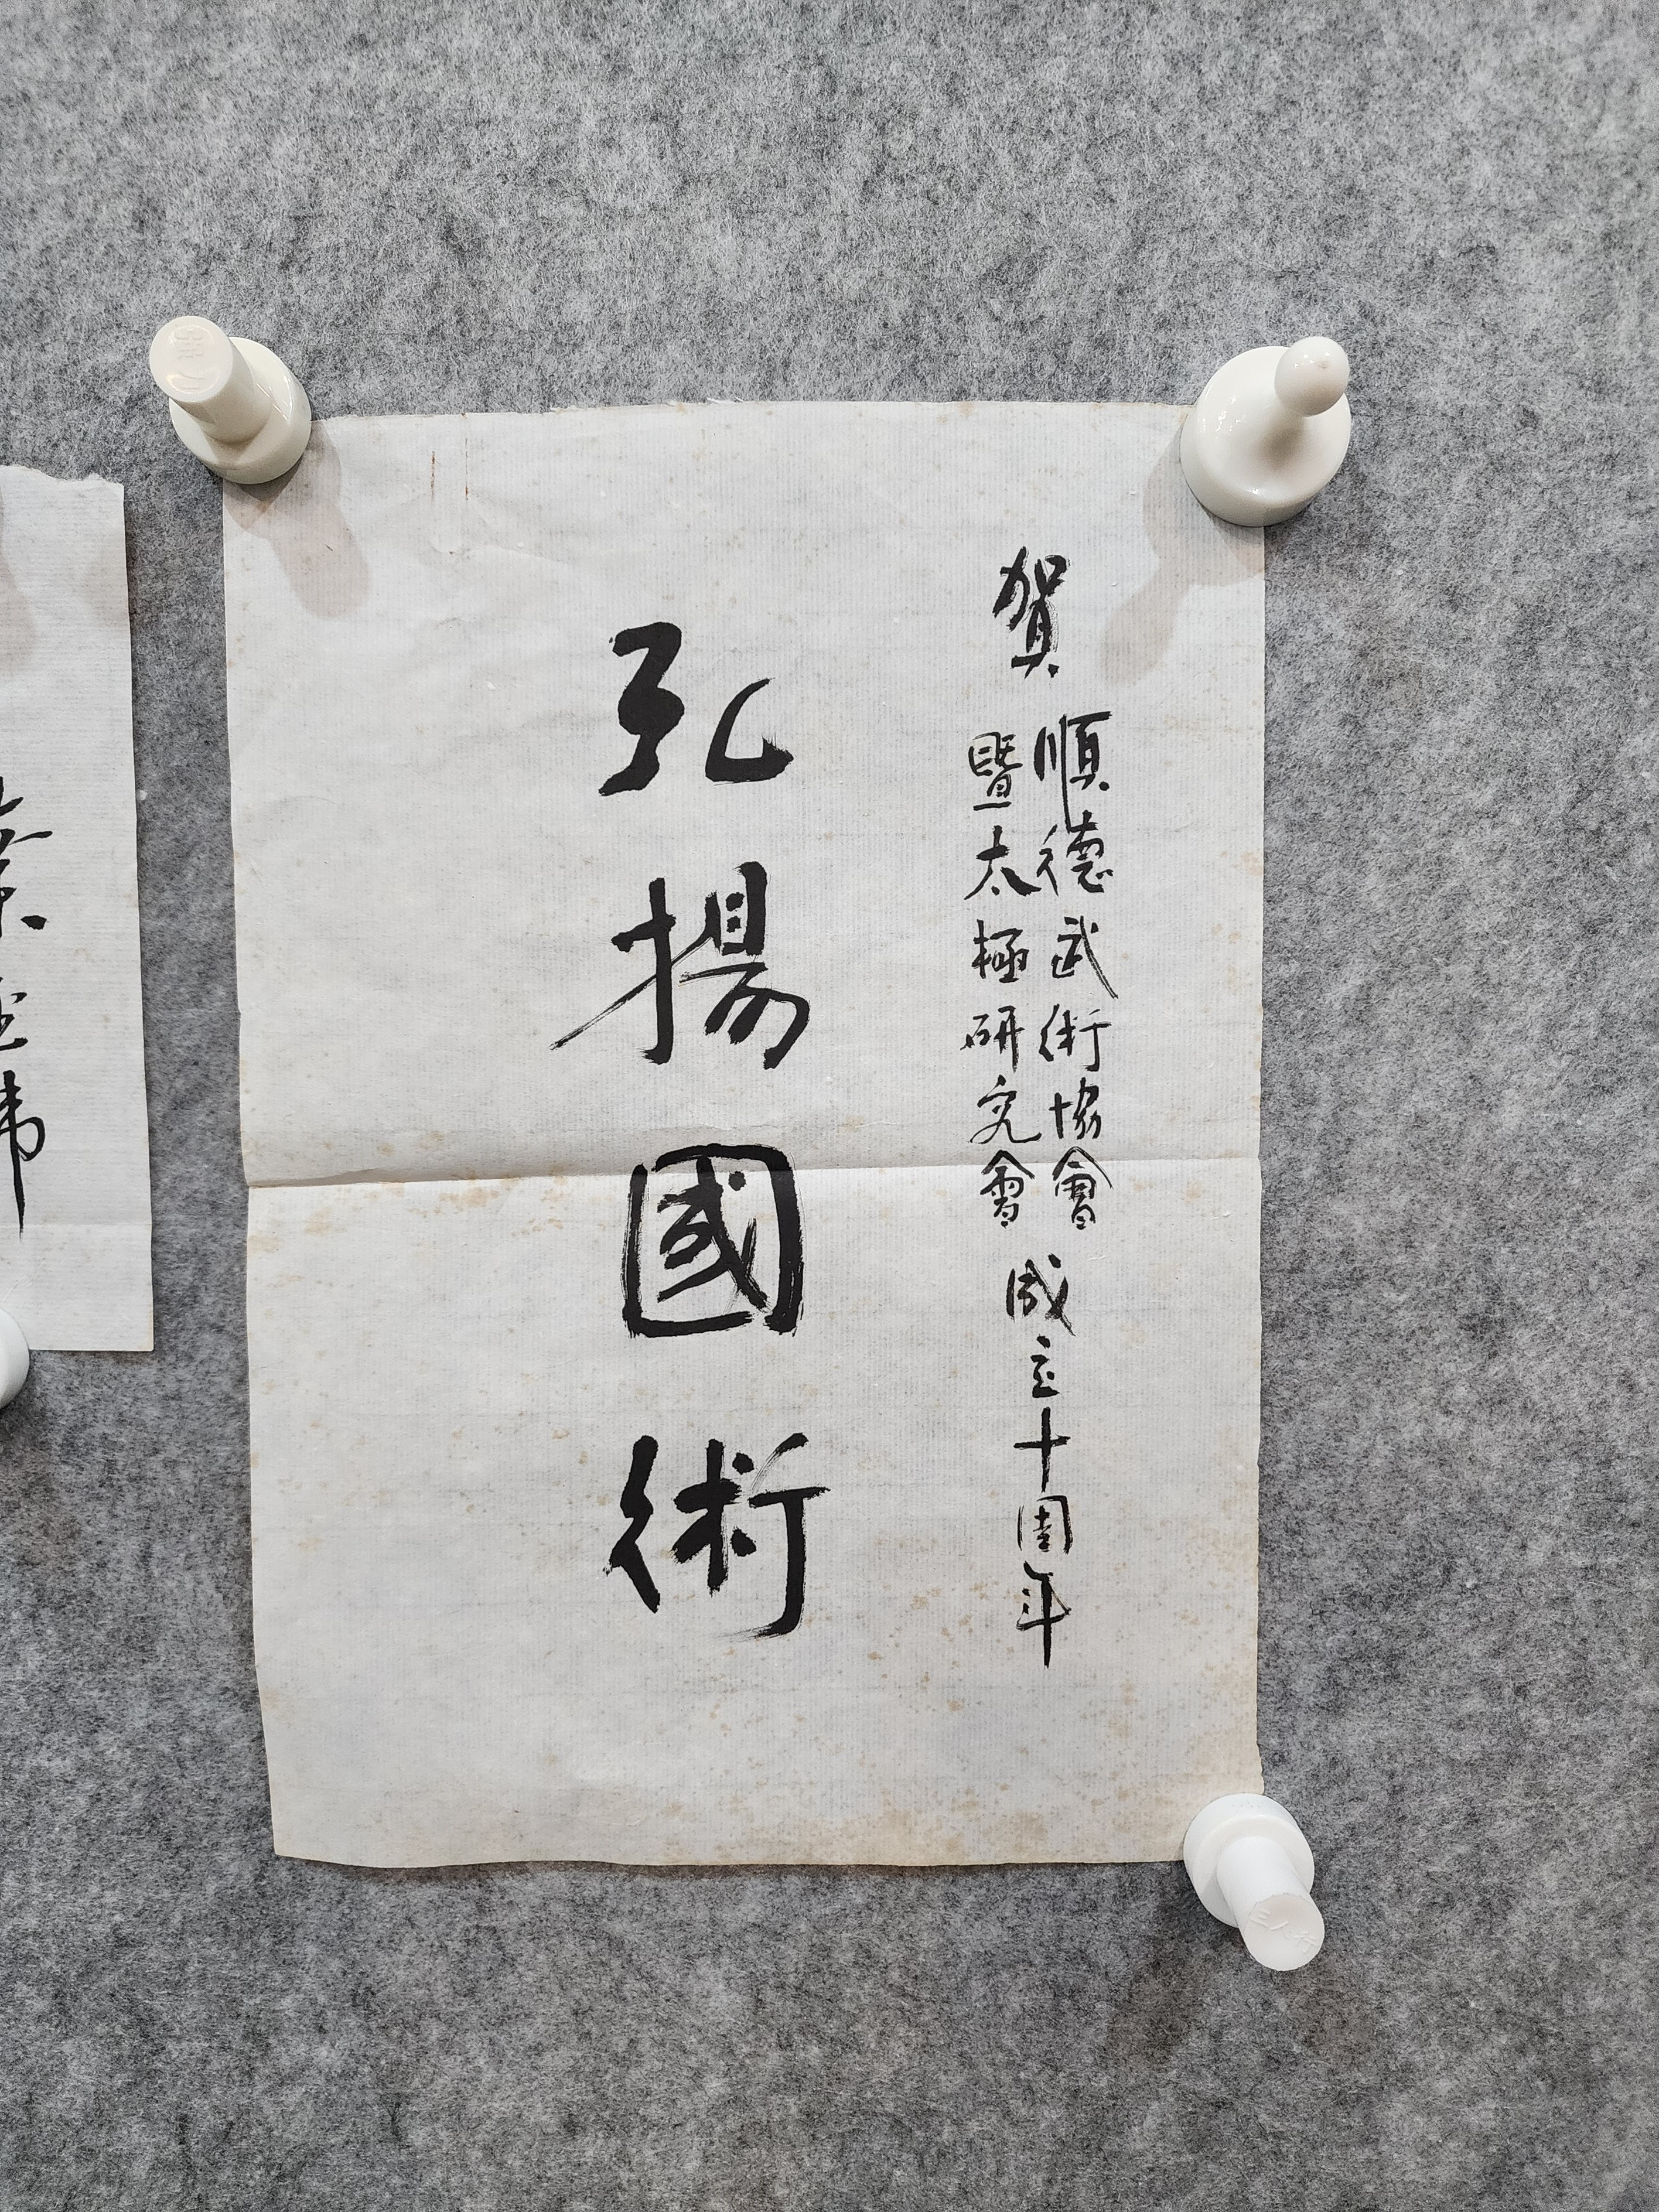 賀
順德武術協會
暨太極研究會
成立十周年
弘揚國術